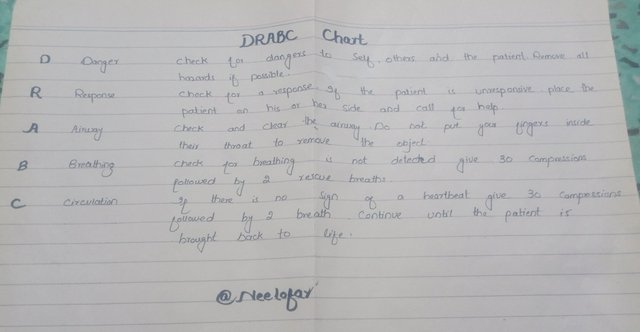 DRABC Chart
D Danger check for dangers to self, others and the patient. Remove all
hazards if possible.
R Response check for a response. If the patient is unresponsive place the
patient on his or her side and call for help.
A Airway check and clear the airway. Do not put your fingers inside
their throat to remove the object.
B Breathing check for breathing is not detected give 30 compressions
followed by 2 rescue breaths.
C Circulation If there is no sign of a heartbeat give 30 compressions
followed by 2 breath. Continue until the patient is
brought back to life.
@Neelofar